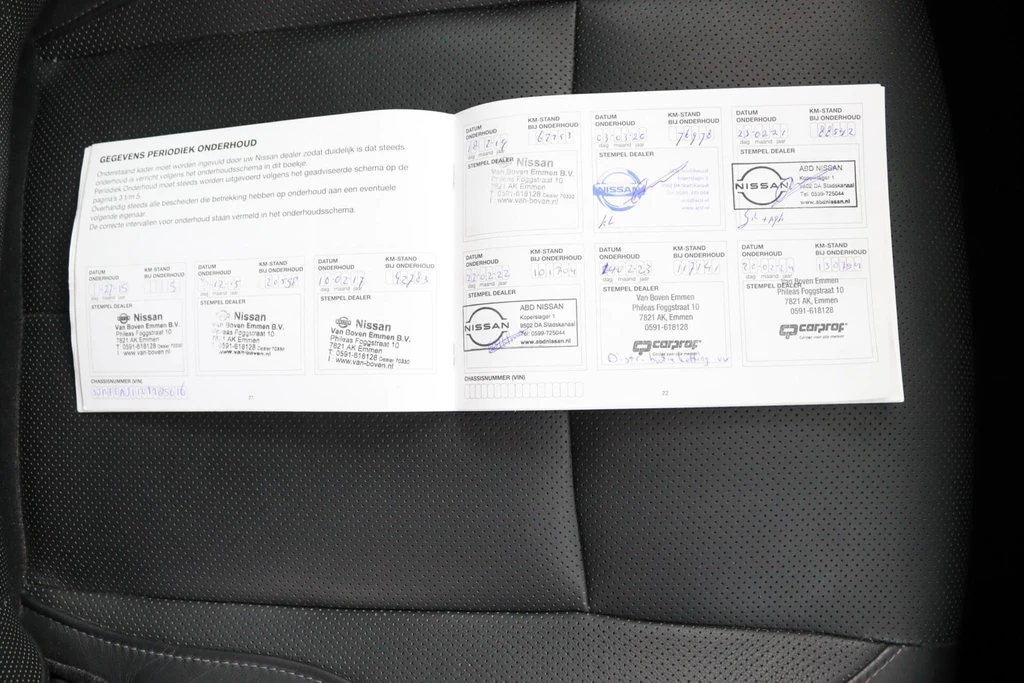 GEGEVENS PERIODIEK ONDERHOUD
Onderstaand kader moet worden ingevuld door uw Nissan dealer zodat duidelijk is dat steeds
onderhoud is verricht volgens het onderhoudsschema in dit boekje.
Periodiek Onderhoud moet steeds worden uitgevoerd volgens het geadviseerde schema op de
pagina's 3 t/m 5.
Overhandig steeds alle bescheiden die betrekking hebben op onderhoud aan een eventuele
volgende eigenaar.
De correcte intervallen voor onderhoud staan vermeld in het onderhoudsschema.
DATUM ONDERHOUD
KM-STAND BIJ ONDERHOUD
dag maand jaar
STEMPEL DEALER
Nissan
Van Boven Emmen B.V.
Phileas Foggstraat 10
7821 AK Emmen
T: 0591-618128 Dealer 70330
www.van-boven.nl
DATUM ONDERHOUD
KM-STAND BIJ ONDERHOUD
dag maand jaar
STEMPEL DEALER
Nissan
Van Boven Emmen B.V.
Phileas Foggstraat 10
7821 AK Emmen
T: 0591-618128 Dealer 70330
www.van-boven.nl
DATUM ONDERHOUD
KM-STAND BIJ ONDERHOUD
10-02-17
dag maand jaar
STEMPEL DEALER
Nissan
Van Boven Emmen B.V.
Phileas Foggstraat 10
7821 AK Emmen
T: 0591-618128 Dealer 70330
I: www.van-boven.nl
CHASSISNUMMER (VIN)
21
DATUM ONDERHOUD
KM-STAND BIJ ONDERHOUD
dag maand jaar
STEMPEL DEALER
Nissan
Van Boven Emmen B.V.
Phileas Foggstraat 10
7821 AK Emmen
T: 0591-618128 Dealer 70330
I: www.van-boven.nl
DATUM ONDERHOUD
KM-STAND BIJ ONDERHOUD
03-03-20 76976
dag maand jaar
STEMPEL DEALER
NISSAN
DATUM ONDERHOUD
KM-STAND BIJ ONDERHOUD
23-02-21 88542
dag maand jaar
STEMPEL DEALER
NISSAN
ABD NISSAN
Koperslager 1
9502 DA Stadskanaal
Tel. 0599-725044
www.abdnissan.nl
DATUM ONDERHOUD
KM-STAND BIJ ONDERHOUD
22-02-22 101704
dag maand jaar
STEMPEL DEALER
NISSAN
ABD NISSAN
Koperslager 1
9502 DA Stadskanaal
Tel. 0599-725044
www.abdnissan.nl
DATUM ONDERHOUD
KM-STAND BIJ ONDERHOUD
117141
dag maand jaar
STEMPEL DEALER
Van Boven Emmen
Phileas Foggstraat 10
7821 AK, Emmen
0591-618128
carprof
Distributieketting vv
DATUM ONDERHOUD
KM-STAND BIJ ONDERHOUD
dag maand jaar
STEMPEL DEALER
Van Boven Emmen
Phileas Foggstraat 10
7821 AK, Emmen
0591-618128
carprof
CHASSISNUMMER (VIN)
22